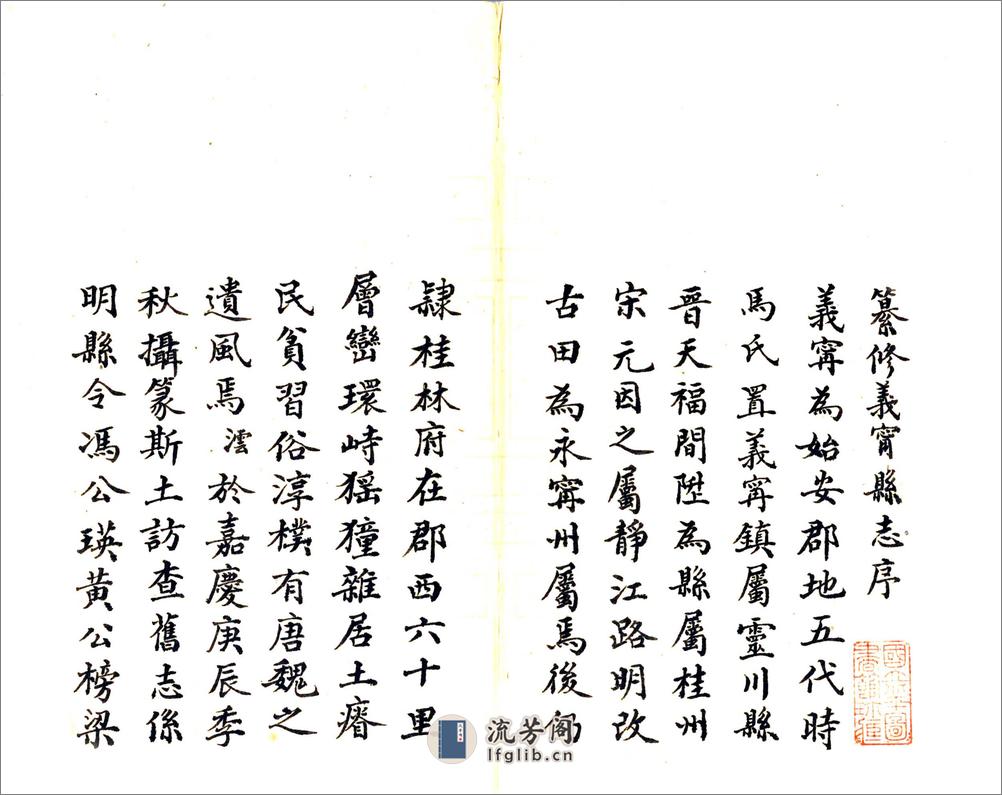 纂修義甯縣志序
義甯為始安郡地五代時
馬氏置義甯鎮屬靈川縣
晉天福間陞為縣屬桂州
宋元因之屬靜江路明改
古田為永甯州屬焉後仍
隸桂林府在郡西六十里
層巒環峙猺獞雜居土瘠
民貧習俗淳樸有唐魏之
遺風焉澐於嘉慶庚辰季
秋攝篆斯土訪查舊志係
明縣令馮公瑛黃公榜梁
流芳阁
lfglib.cn